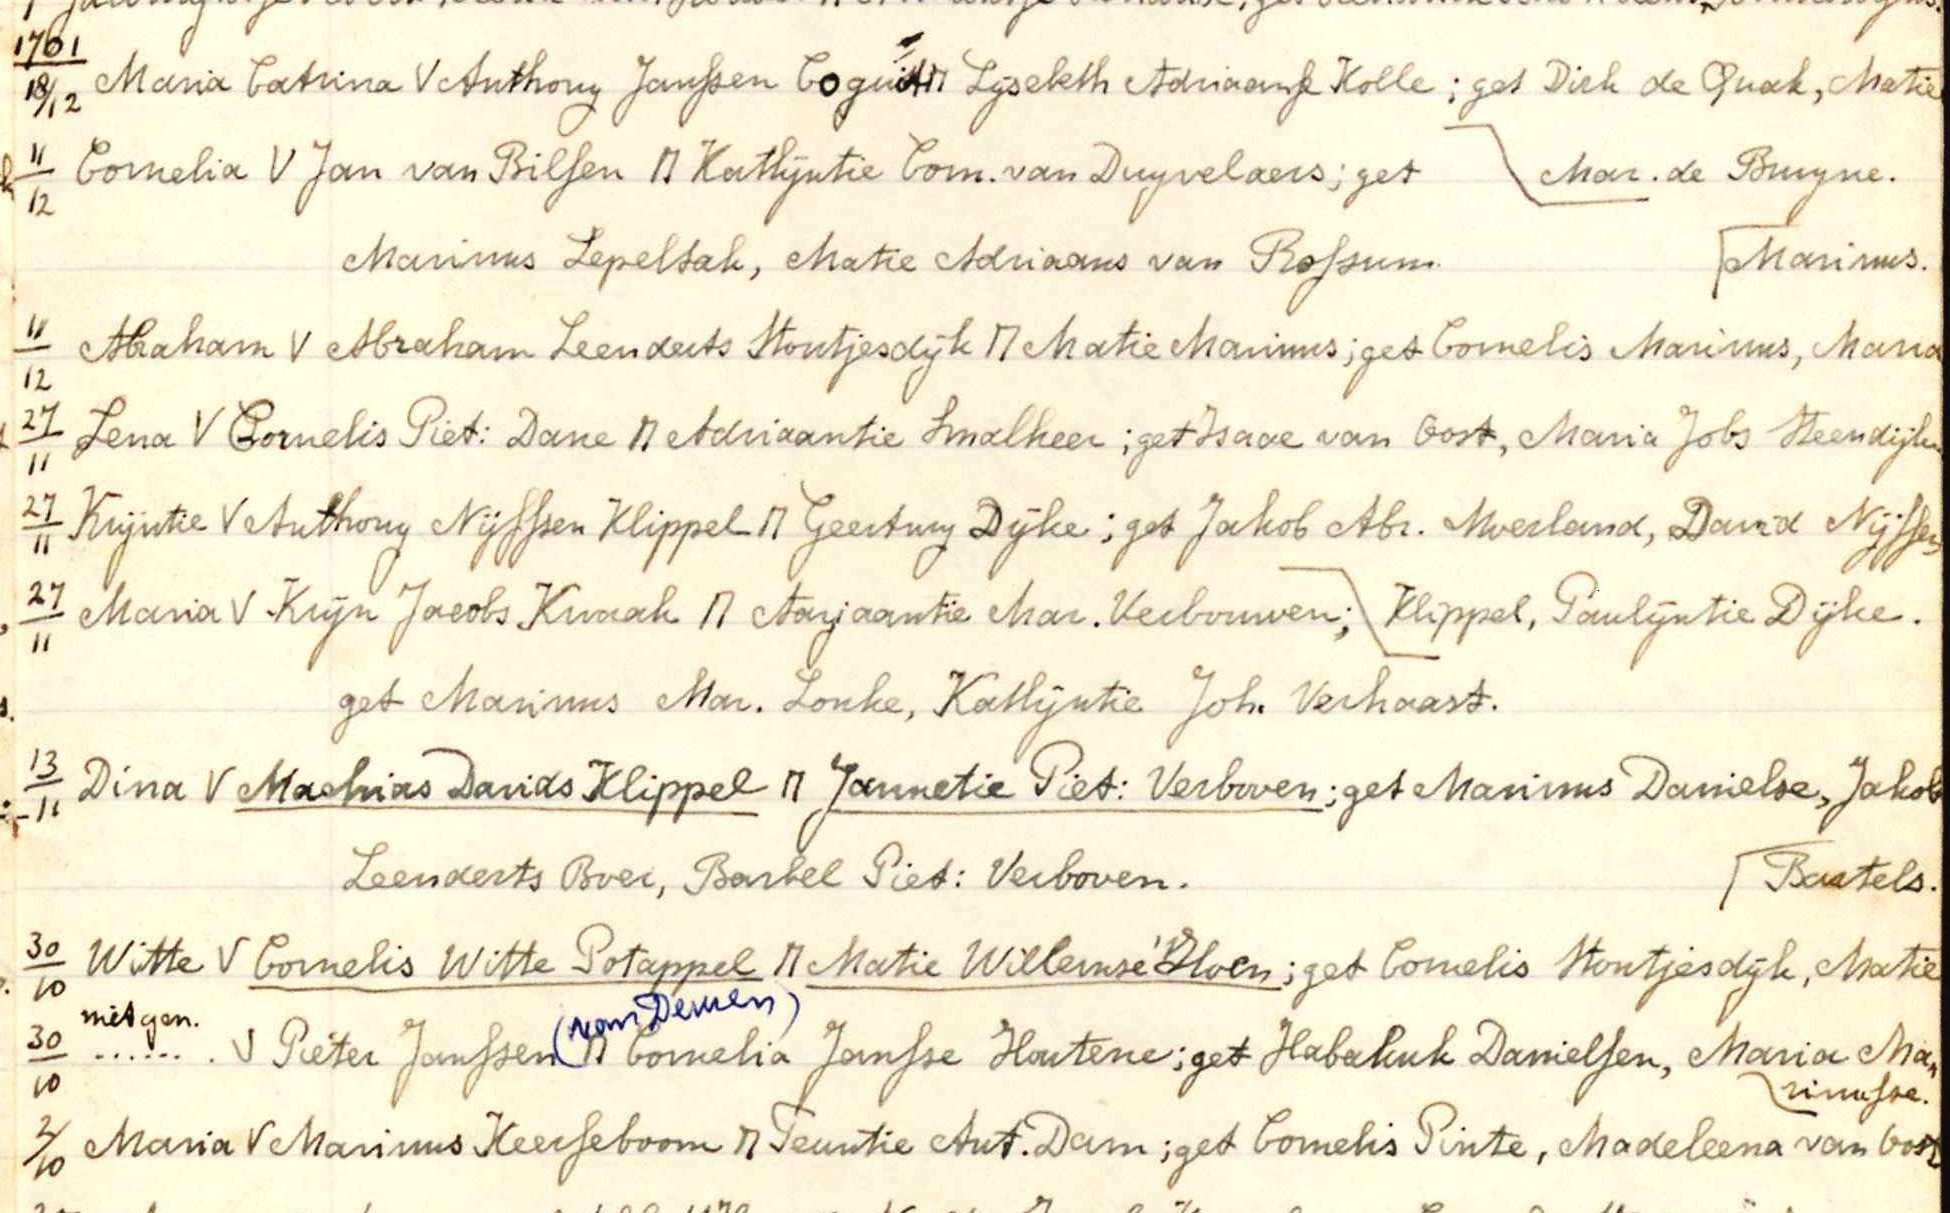 1701
18/12 Maria Catrina V Anthony Janssen M Lysebeth Adriaanse Kolle ; get Dirk de Quak, Matie
11/12 Cornelia V Jan van Bilsen M Katlyntie Corn. van Duyvelaers ; get Mar. de Bruyne.
Marinus Lepeltak, Matie Adriaans van Rossum. Marinus.
11/12 Abraham V Abraham Leenderts Stoutjesdyk M Matie Marinus ; get Cornelis Marinus, Maria
27/11 Lena V Cornelis Piet: Dane M Adriaantie Smalheer ; get Isaac van Oost, Maria Jobs Steendijke
27/11 Krijntie V Anthony Nijssen Klippel M Geertruy Dijke ; get Jakob Abr. Moerland, David Nijssen
27/11 Maria V Krijn Jacobs Kwaak M Aarjaantie Mar. Verbouwen ; Klippel, Paulijntie Dijke.
get Marinus Mar. Lonke, Katlijntie Joh. Verhaast.
13/11 Dina V Machias Davids Klippel M Jannetie Piet: Verboven ; get Marinus Danielse, Jakob
Leenderts Boer, Barbel Piet: Verboven. Bartels.
30/10 Witte V Cornelis Witte Potappel M Matie Willemse ; get Cornelis Stoutjesdyk, Matie
niet gen. (van Deuren)
30/10 ....... V Pieter Janssen M Cornelia Jansse Houtene ; get Habakuk Danielsen, Maria Ma-
rinusse.
2/10 Maria V Marinus Keerseboom M Teuntie Ant. Dam ; get Cornelis Pinte, Madeleena van Oost